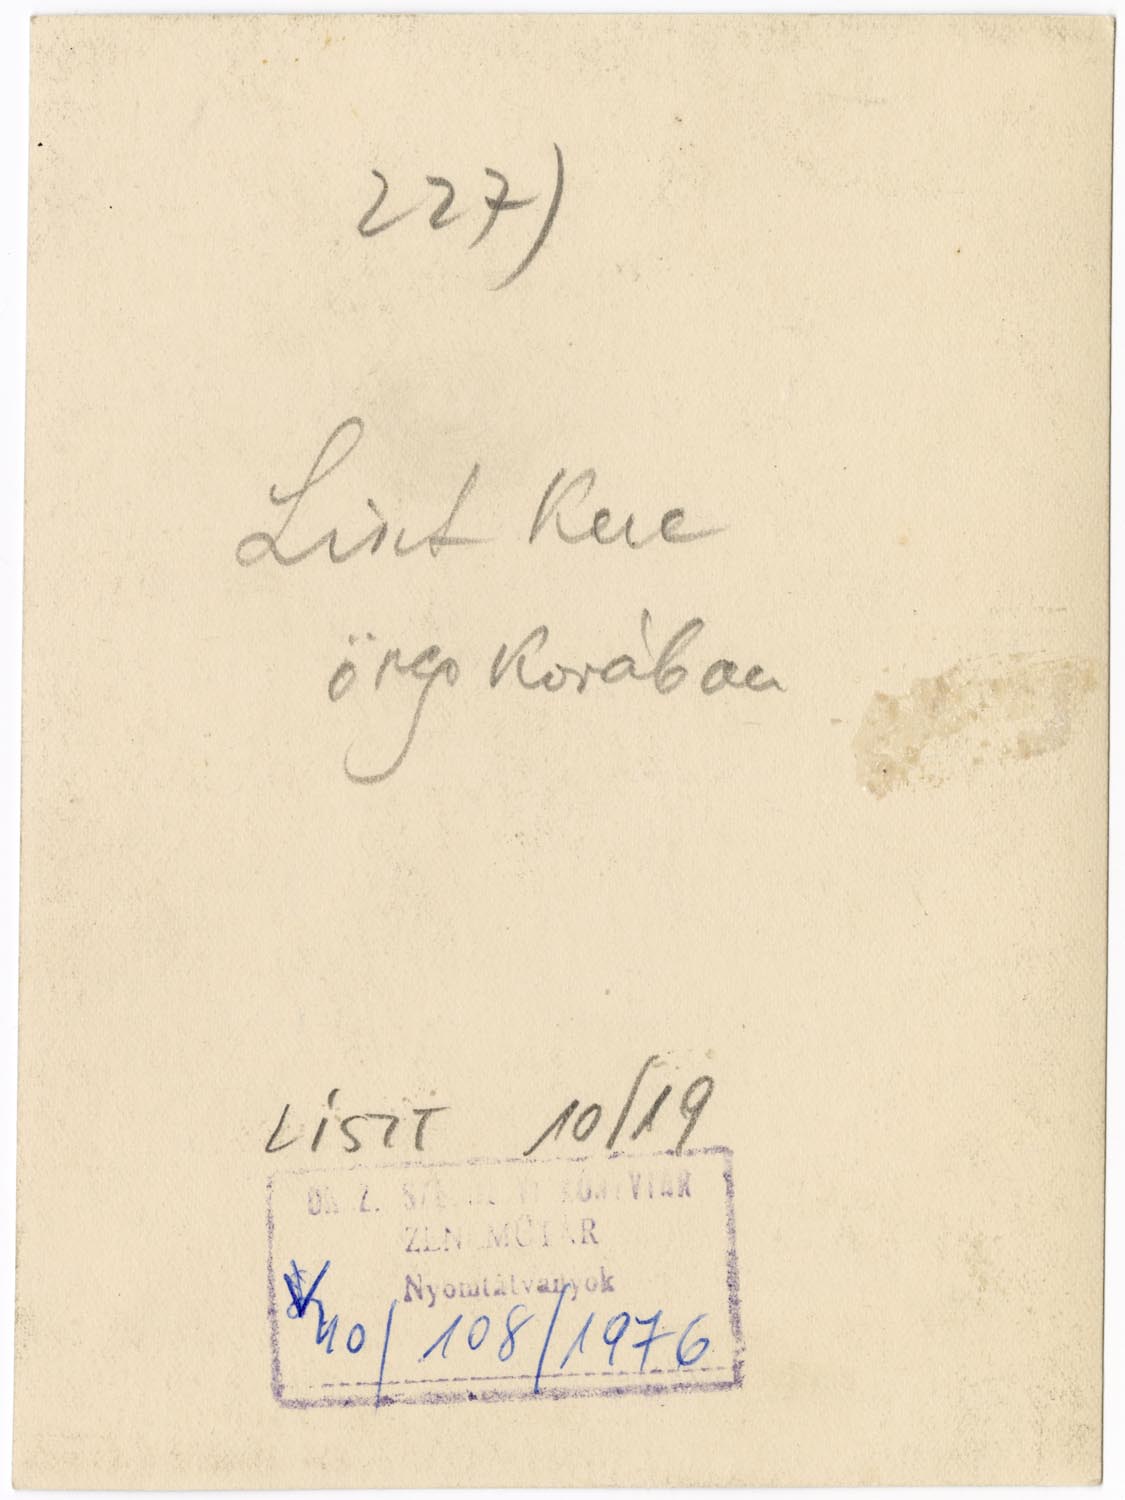 227)
Liszt Keze
öreg Korában
LISZT 10/19
ORSZ. SZÉCHÉNYI KÖNYVTÁR
ZENEMŰTÁR
Nyomtatványok
40/ 108/1976